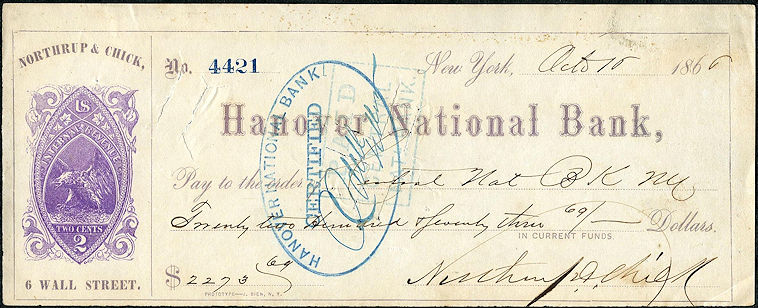 NORTHRUP & CHICK,
No. 4421
New York, Oct 10 1866
US
INTERNAL REVENUE
TWO CENTS
2
6 WALL STREET.
Hanover National Bank,
HANOVER NATIONAL BANK
CERTIFIED
PAID
Pay to the order Central Nat BK NY
Twenty two Hundred & Seventy three 69/- Dollars.
IN CURRENT FUNDS
$2273 69
Northrup & Chick
PHOTOTYPE—J. BIEN, N.Y.